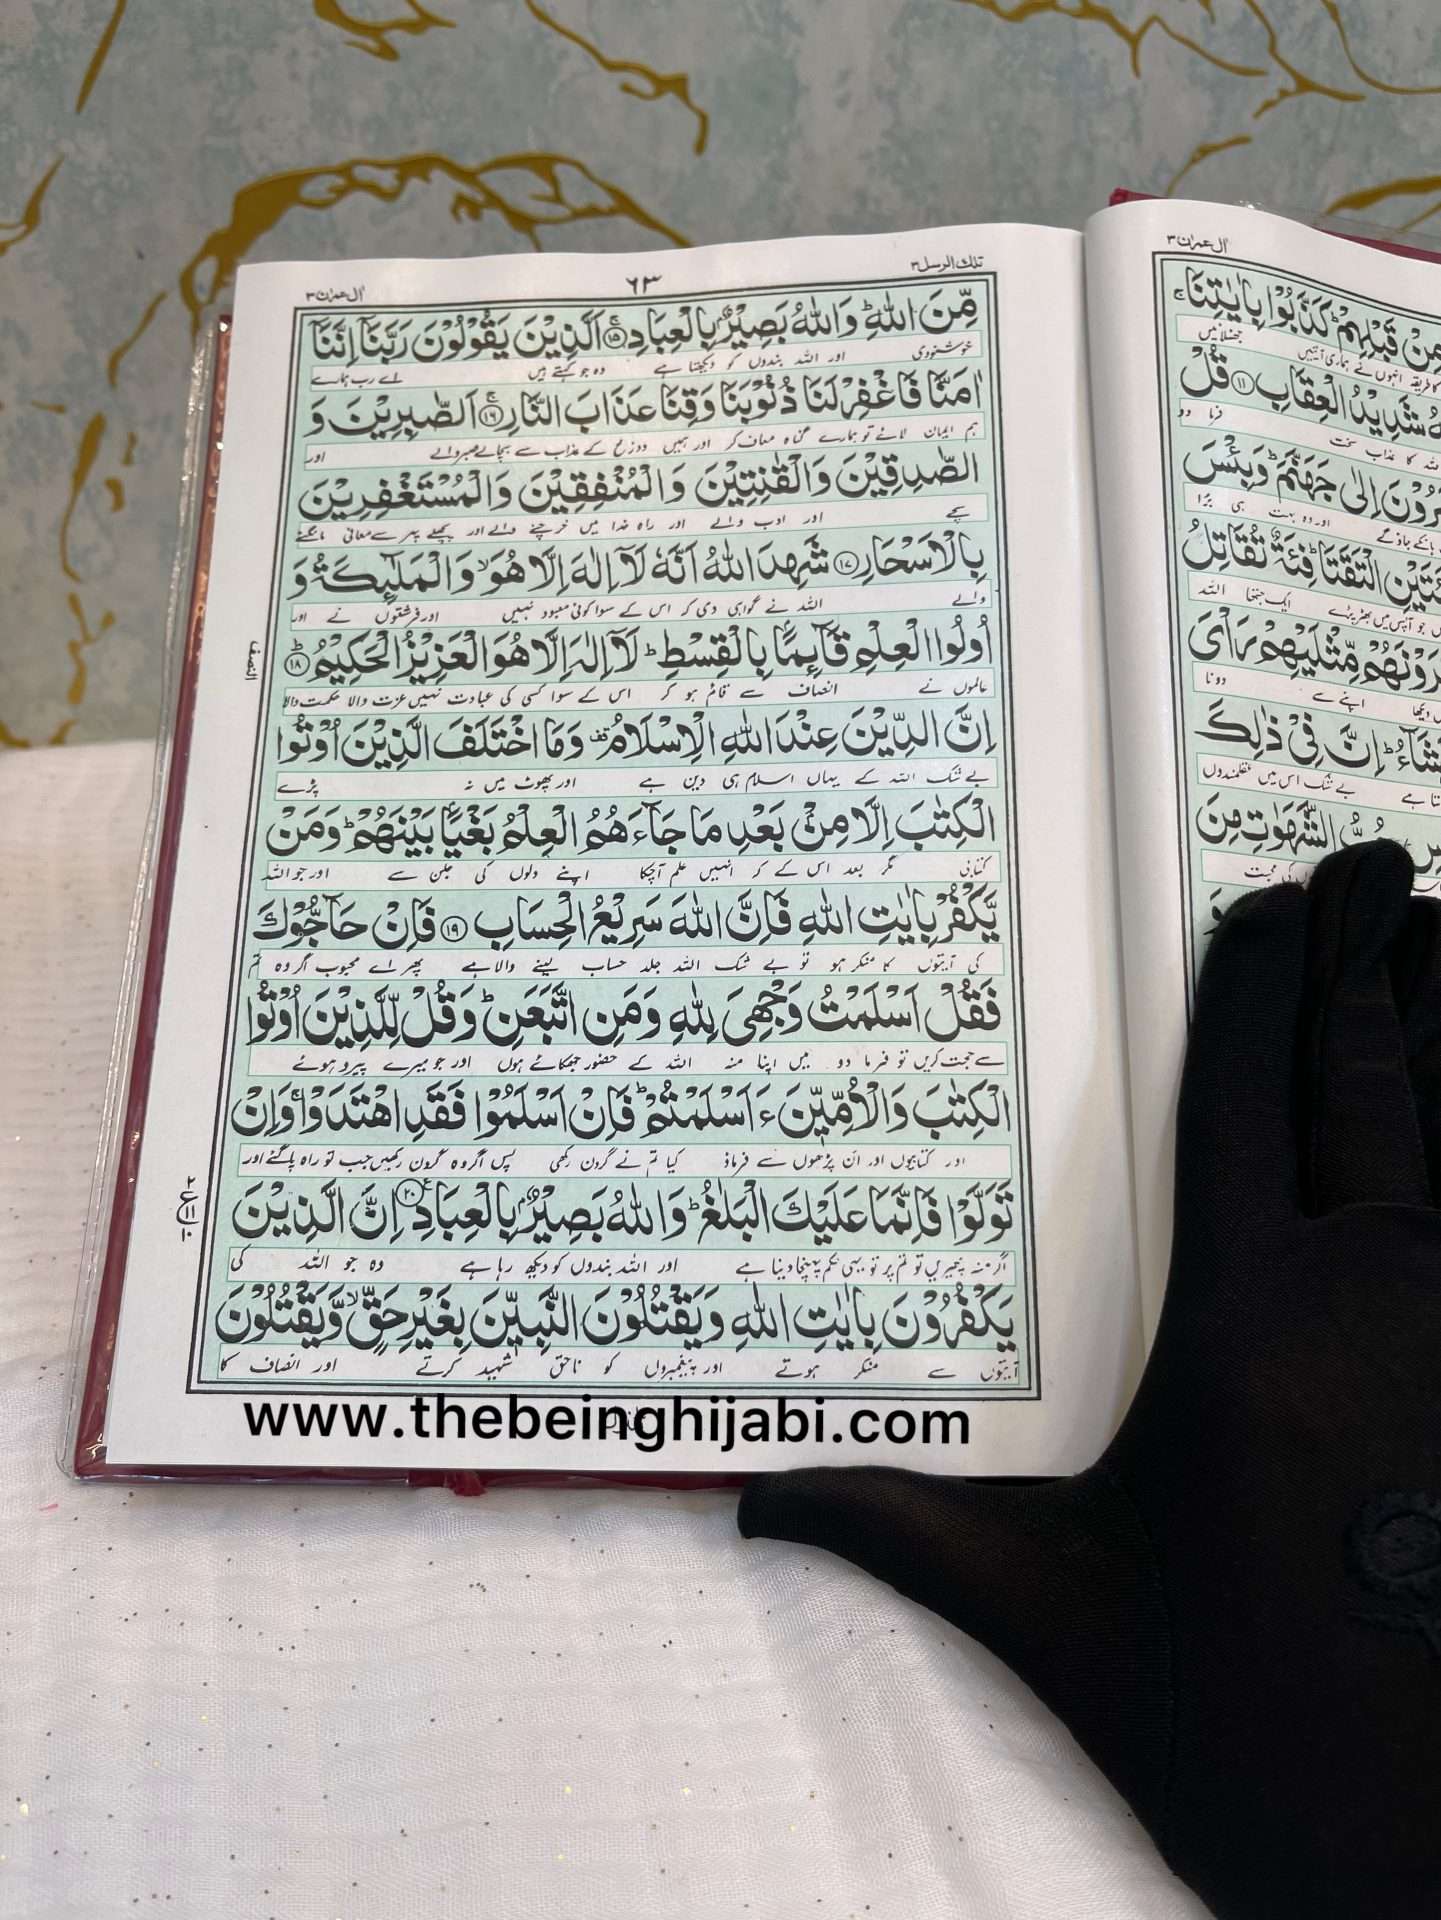 اٰل عمرٰن ٣
مِنْ قَبْلِهِمْ ۚ كَذَّبُوْا بِاٰيٰتِنَا ۚ
کا طریقہ انہوں نے ہماری آیتیں جھٹلائیں
شَدِيْدُ الْعِقَابِ ۝۱۱ قُلْ
اللہ کا عذاب سخت فرما دو
اِلٰى جَهَنَّمَ ؕ وَبِئْسَ
ہانکے جاؤ گے اور وہ بہت ہی برا
الْتَقَتَا ؕ فِئَةٌ تُقَاتِلُ
جو آپس میں بھڑ پڑے ایک جتھا اللہ
يَّرَوْنَهُمْ مِّثْلَيْهِمْ رَاْىَ
دیکھا اپنے سے دونا
اِنَّ فِيْ ذٰلِكَ
بے شک اس میں عقلمندوں
حُبُّ الشَّهَوٰتِ مِنَ
کی محبت
وَ
تلك الرسل ٣
٦٣
اٰل عمرٰن ٣
مِّنَ اللّٰهِ ؕ وَاللّٰهُ بَصِيْرٌۢ بِالْعِبَادِ ۝۱۵ۚ اَلَّذِيْنَ يَقُوْلُوْنَ رَبَّنَاۤ اِنَّنَاۤ
خوشنودی اور اللہ بندوں کو دیکھتا ہے وہ جو کہتے ہیں اے رب ہمارے
اٰمَنَّا فَاغْفِرْ لَنَا ذُنُوْبَنَا وَقِنَا عَذَابَ النَّارِ ۝۱۶ۚ اَلصّٰبِرِيْنَ وَ
ہم ایمان لائے تو ہمارے گناہ معاف کر اور ہمیں دوزخ کے عذاب سے بچالے صبر والے اور
الصّٰدِقِيْنَ وَالْقٰنِتِيْنَ وَالْمُنْفِقِيْنَ وَالْمُسْتَغْفِرِيْنَ
سچے اور ادب والے اور راہ خدا میں خرچنے والے اور پچھلے پہر سے معافی مانگنے
بِالْاَسْحَارِ ۝۱۷ شَهِدَ اللّٰهُ اَنَّهٗ لَاۤ اِلٰهَ اِلَّا هُوَ ۙ وَالْمَلٰٓئِكَةُ وَ
والے اللہ نے گواہی دی کہ اس کے سوا کوئی معبود نہیں اور فرشتوں نے اور
اُولُوا الْعِلْمِ قَآئِمًۢا بِالْقِسْطِ ؕ لَاۤ اِلٰهَ اِلَّا هُوَ الْعَزِيْزُ الْحَكِيْمُ ۝۱۸ؕ
عالموں نے انصاف سے قائم ہو کر اس کے سوا کسی کی عبادت نہیں عزت والا حکمت والا
النصف
اِنَّ الدِّيْنَ عِنْدَ اللّٰهِ الْاِسْلَامُ ۫ وَمَا اخْتَلَفَ الَّذِيْنَ اُوْتُوا
بے شک اللہ کے یہاں اسلام ہی دین ہے اور پھوٹ میں نہ پڑے
الْكِتٰبَ اِلَّا مِنْۢ بَعْدِ مَا جَآءَهُمُ الْعِلْمُ بَغْيًۢا بَيْنَهُمْ ؕ وَمَنْ
کتابی مگر بعد اس کے کہ انہیں علم آچکا اپنے دلوں کی جلن سے اور جو اللہ
يَّكْفُرْ بِاٰيٰتِ اللّٰهِ فَاِنَّ اللّٰهَ سَرِيْعُ الْحِسَابِ ۝۱۹ فَاِنْ حَآجُّوْكَ
کی آیتوں کا منکر ہو تو بے شک اللہ جلد حساب لینے والا ہے پھر اے محبوب اگر وہ تم
فَقُلْ اَسْلَمْتُ وَجْهِىَ لِلّٰهِ وَمَنِ اتَّبَعَنِ ؕ وَقُلْ لِّلَّذِيْنَ اُوْتُوا
سے حجت کریں تو فرما دو میں اپنا منہ اللہ کے حضور جھکائے ہوں اور جو میرے پیرو ہوئے
الْكِتٰبَ وَالْاُمِّيّٖنَ ءَاَسْلَمْتُمْ ؕ فَاِنْ اَسْلَمُوْا فَقَدِ اهْتَدَوْا ۚ وَاِنْ
اور کتابیوں اور ان پڑھوں سے فرماؤ کیا تم نے گردن رکھی پس اگر وہ گردن رکھیں جب تو راہ پا گئے اور
تَوَلَّوْا فَاِنَّمَا عَلَيْكَ الْبَلٰغُ ؕ وَاللّٰهُ بَصِيْرٌۢ بِالْعِبَادِ ۝۲۰ اِنَّ الَّذِيْنَ
اگر منہ پھیریں تو تم پر تو یہی حکم پہنچا دینا ہے اور اللہ بندوں کو دیکھ رہا ہے وہ جو اللہ کی
يَكْفُرُوْنَ بِاٰيٰتِ اللّٰهِ وَيَقْتُلُوْنَ النَّبِيّٖنَ بِغَيْرِ حَقٍّ ۙ وَّيَقْتُلُوْنَ
آیتوں سے منکر ہوتے اور پیغمبروں کو ناحق شہید کرتے اور انصاف کا
www.thebeinghijabi.com